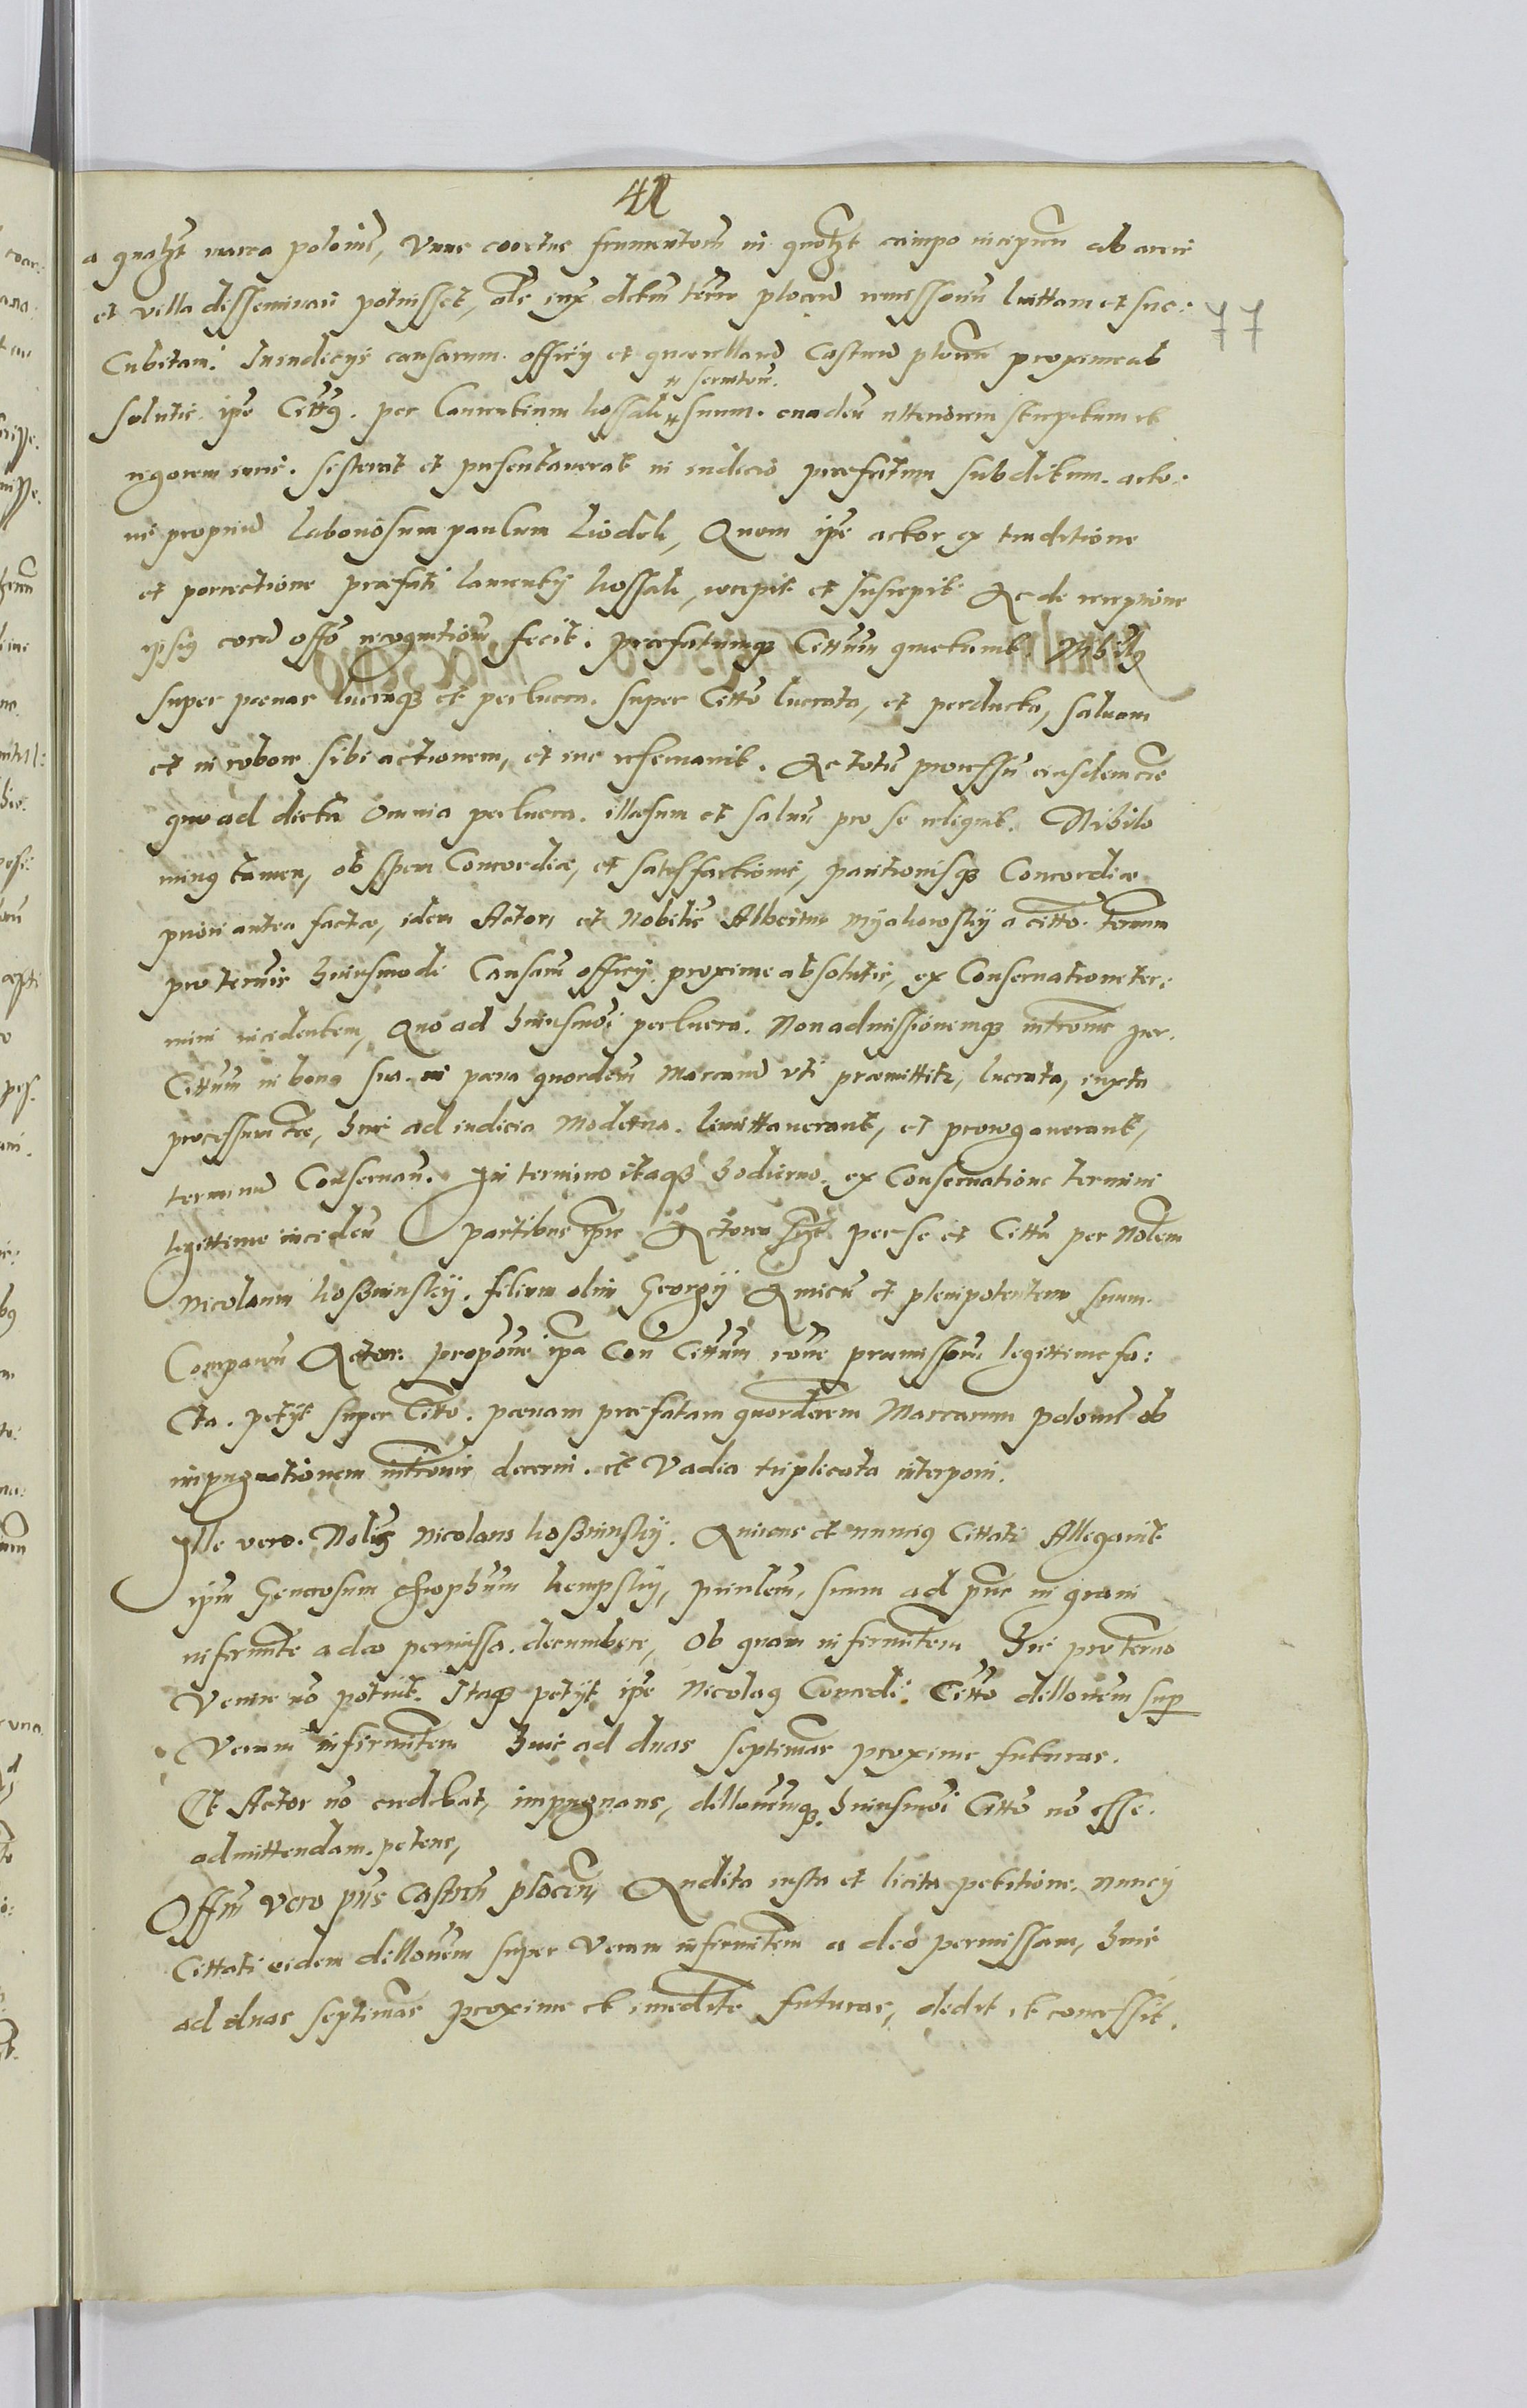 41
77
a quolzt marca poloni, Unus coretus frumentorum in quolzt campo incipiendo ab arcis
et villa disseminari potuisset, als iux dctum terre plocen remissoriu luittam et suc:
Cubitam: In iudicys causarum officy et querellaru Castren plocen proxime ab
" seruitore.
solutis ipse Cittus. per Laurentium kossak " suum. euadeu ulteriorem strepitum et
rigorem iuris. sisterat et presentauerat in iudicio præfatum subditum. acto:
ris propriu Laboriosum paulum Ziodek, Quem ipse actor ex traditione
et porrectione præfati laurenty kossak, recepit et suscepit Ac de receptione
ipsius coram offo recognitiom fecit. præfatumq Cittum quietauit. Nihilq
super pœnas lucraq et perlucra. super Citto lucrata, et perducta, saluam
et in robore sibi actionem, et ius reseruauit. Ac totu processu eiusdem cae
quo ad dicta omnia perlucra. illæsum et saluu pro se reliquit. Nihilo
minus tamen, ob spem Concordiæ, et satisfactionis, paritionisq Concordiæ
priori antea factæ, idem Actor, et Nobilis Albertus Myakowsky a citto. termm
pro termis huiusmodi Causaru officy proxime absolutis, ex Conseruatione ter:
mini incidentem, Quo ad huiusmoi perlucra. Non admissionemq intromis per.
Cittum in bona sua. in pœna quordem Marcaru uti præmittitr, lucrata, iuxta
processum tre, huc ad iudicia Moderna. limittauerant, et prorogauerant,
terminu Conseruan. In termino itaq hodierno. ex Conseruatione termini
legittime inciden partibus ipsis Actore szt per se et Cittu per Nobem
Nicolaum kossinsky. filium olim Georgy Amicu et plenipotentem suum.
Comparen Actor. propone ipa Con Cittum rone premissoru legittime fa:
cta. petyt super Citto. pœnam præfatam quordecem Marcarum poloni ob
impugnationem intromis decerni. et Vadia triplicata interponi.
Ille vero. Nobis Nicolaus kossinsky. Amicus et nuncius Cittati Allegauit
ipm Generosum Chrophum kempsky, prinlem, suum ad pns in graui
infirmte a deo permissa. decumbere, Ob quam infirmitem huc pro termo
Venire no potuit. Itaq petyt ipse Nicolaus Concedi: Citto dillonem sup
Veram infirmitem huic ad duas septimas proxime futuras.
Et Actor no credebat, impugnans, dillonemq. huiusmoi Citto no esse.
admittendam. petens,
Offm vero pns Castren plocen Audita iusta et licita petitione. Nuncy
Cittati eidem dillonem super Veram infirmitem a deo permissam, huc
ad duas septimas proxime et imedite futuras, dedit et concessit.